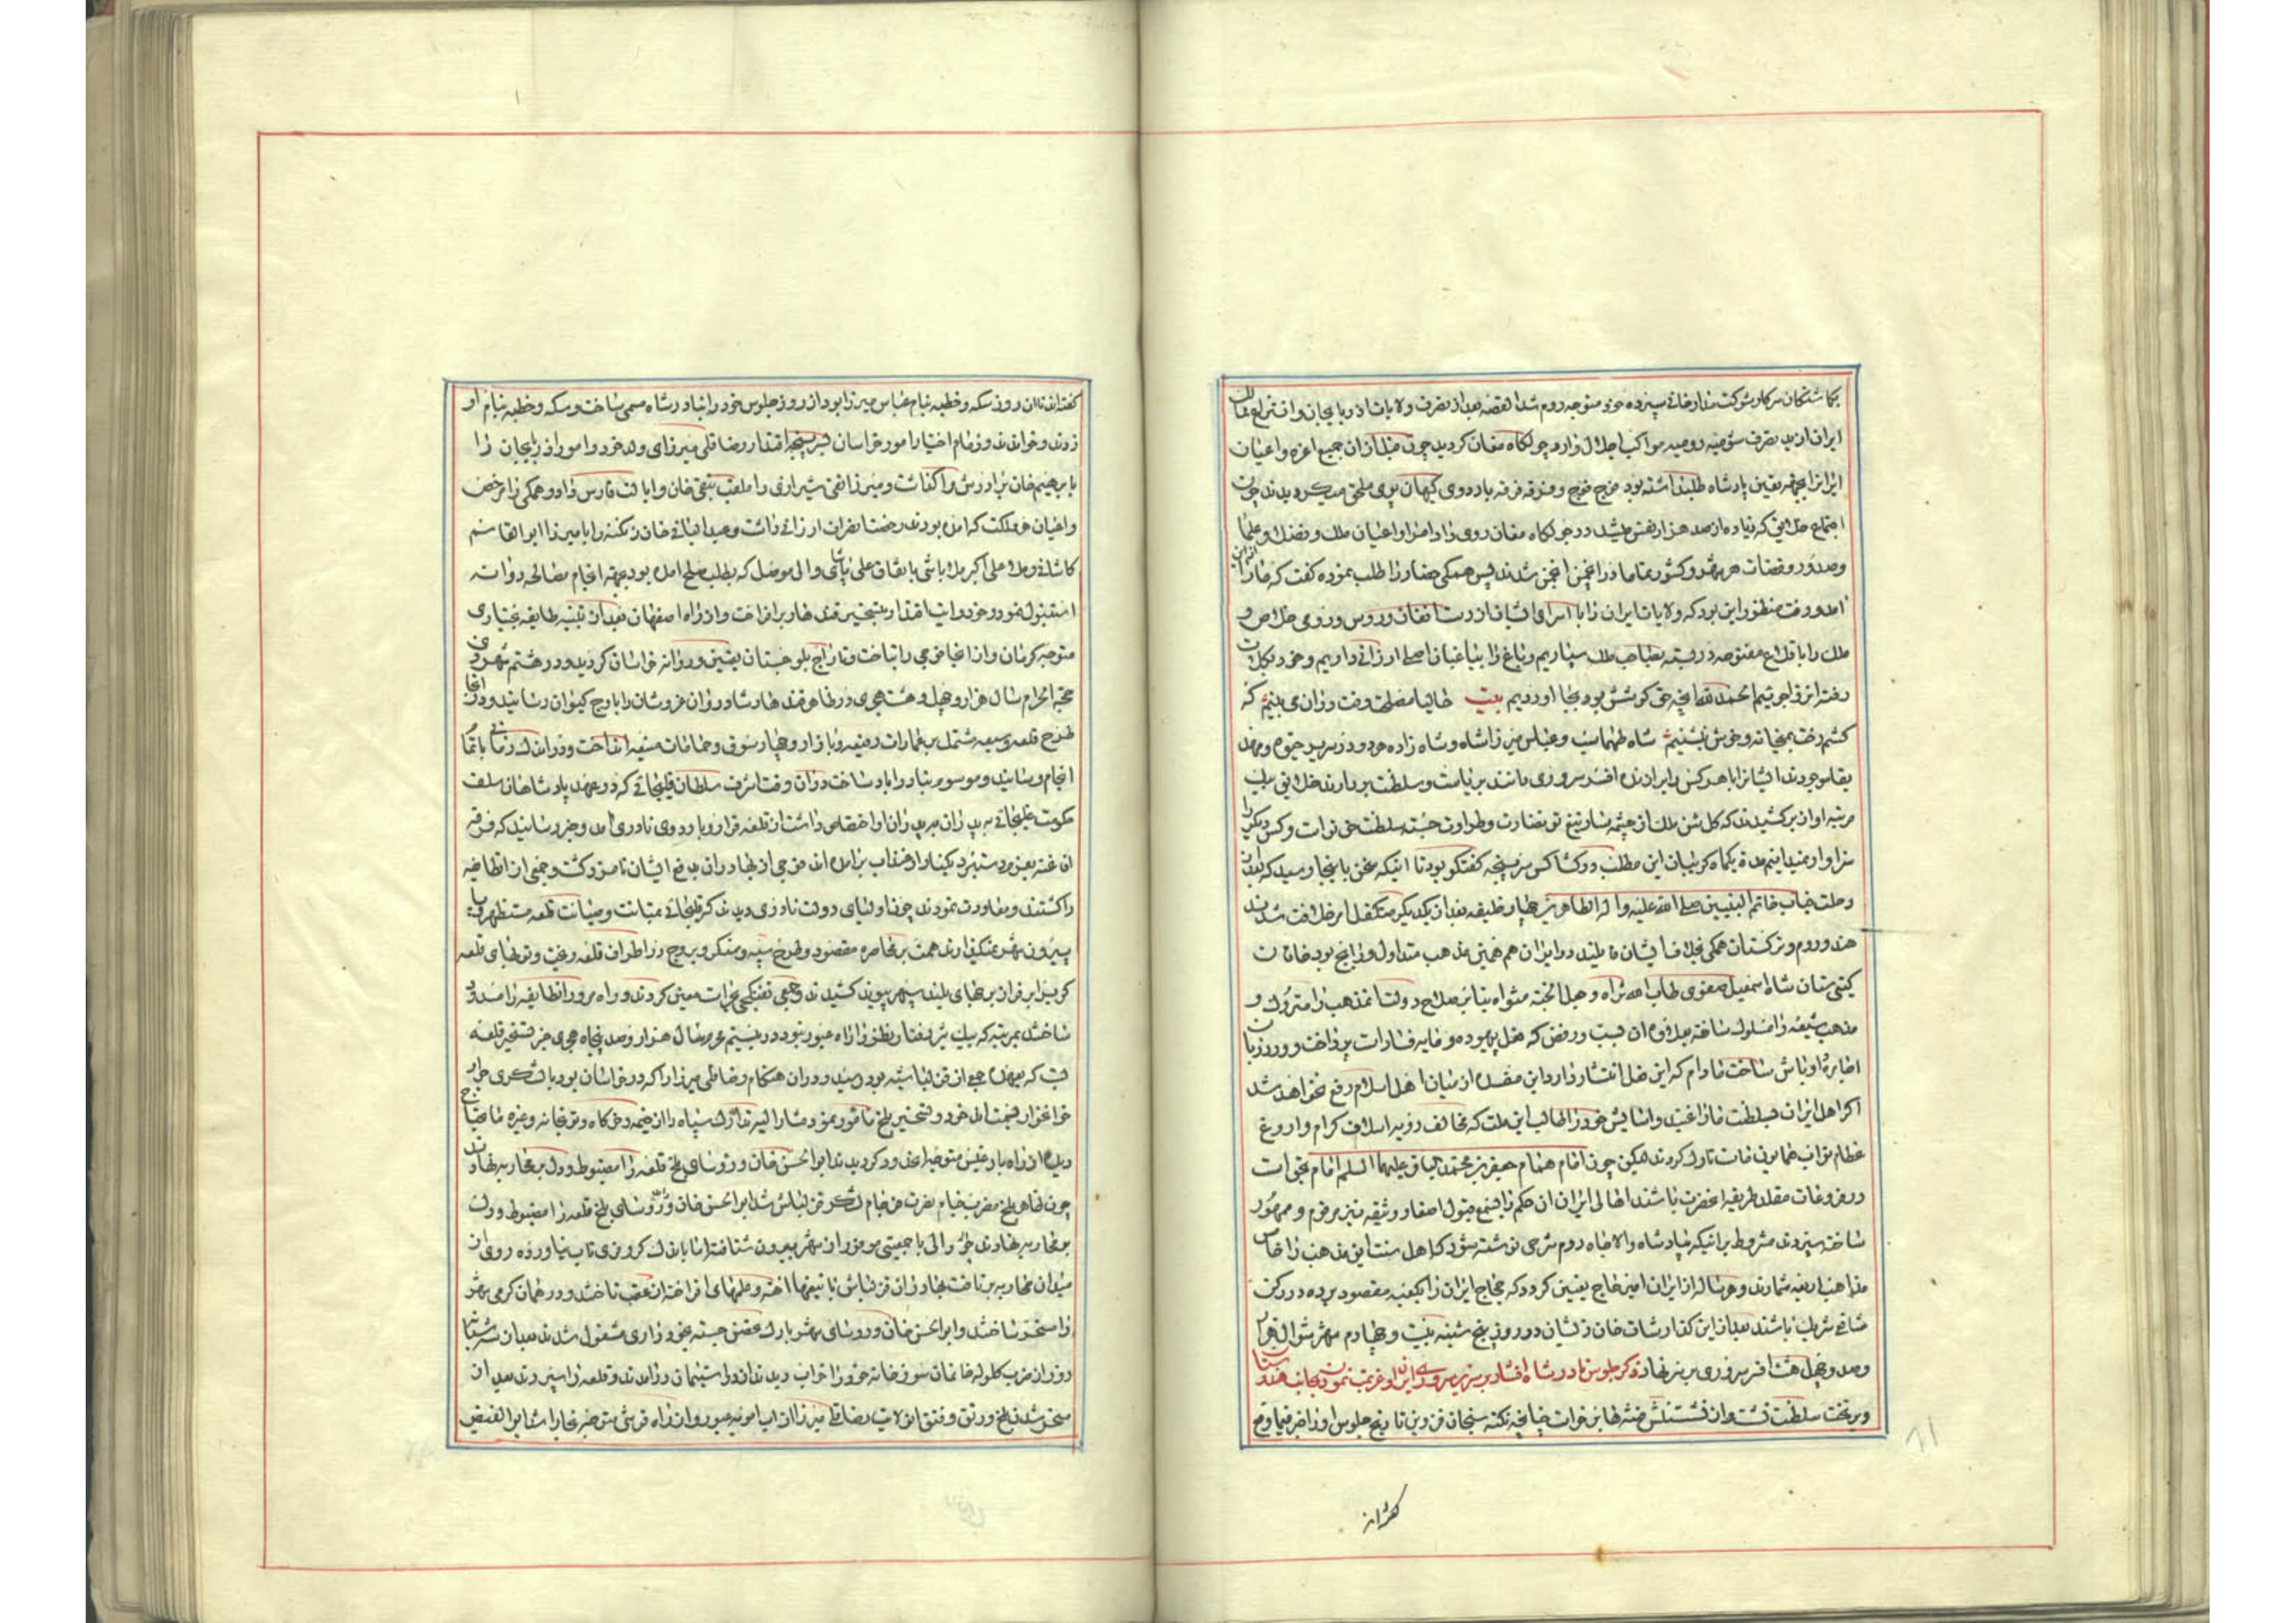 بکماشتکان سرکار شوکت مدار خانی سپرده خود متوجه روم شد القصه بعد از تصرف ولایات اذربایجان و انتزاع ممالک
ایران از ید تصرف رومیه مواکب اجلال وارد چولکاه مغان کردید چون قبل از ان جمیع اعزه و اعیان
ایرانرا بجهة تعیین پادشاه طلب داشته بود فوج فوج و فرقه فرقه باردوی کیهان پوی ملحق میکردیدند چون
اجتماع خلایق که زیاده از صد هزار نفس میشد در چولکاه مغان روی داد امرا و اعیان ملک و فضلا و علما
و صدور و قضات هر شهر و کشور تماما در انجمن شدند پس همکی حضار را طلب نموده کفت که ما را از این
امد و رفت منظور این بود که ولایات ایران را با اسرای ایشان از دست افغان و روس و رومی خلاص و
ملک را با قلاع مفتوحه در بسته بصاحب ملک سپاریم و باغ را بباغبان اصلی ارزانی داریم و خود بکلات
رفته انزوا جوییم الحمد لله انچه حق کوشش بود بجا اوردیم بیت حالیا مصلحت وقت در ان می بینم که
کشم رخت بمیخانه و خوش بنشینم شاه طهماسب و عباس میرزا شاه و شاه زاده هر دو در سریر حیوة و مهد
بقا موجودند ایشانرا یا هر کس را برازنده افسر سروری دانند بریاست و سلطنت بردارند خلایق بیک
مرتبه اواز برکشیدند که کلشن ملک از چشمه سار تیغ تو نضارت و طراوت جسته سلطنت حق تو است و کس دیکر را
سزاوار نمیدانیم مدة یکماه کریبان این مطلب در کشاکش سرپنجه کفتکو بود تا اینکه سخن باینجا رسید که بعد از
رحلت جناب خاتم النبیین صلی الله علیه و اله الطاهرین چهار خلیفه بعد از یکدیکر متکفل امر خلافت شدند
هند و روم و ترکستان همکی بخلافت ایشان قایلند در ایران هم همین مذهب متداول و رایج بود خاقان
کیتی ستان شاه اسمعیل صفوی طاب الله ثراه و جعل الجنة مثواه بنابر صلاح دولت ان مذهب را متروک و
مذهب شیعه را مسلوک ساخته بعلاوه ان سب و رفض که فعل بیهوده و مایه فسادات پرداخت و ورد زبان
اجامره و اوباش ساخت مادام که این فعل انتشار دارد این مفسده از میان اهل اسلام رفع نخواهد شد
اکر اهل ایران بسلطنت ما راغبند و اسایش خود را طالب این ملت که مخالف رویه اسلاف کرام و اروغ
عظام نواب همایونی ماست تارک کردند لیکن چون امام همام جعفر بن محمد الباقر علیهما السلم امام بحق است
در فروعات مقلد طریقه انحضرت باشند اهالی ایران ان حکم را بسمع قبول اصغا و وثیقه نیز مرقوم و ممهور
ساخته سپردند مشروط برانیکه بپادشاه والاجاه روم شرحی نوشته شود که اهل سنت این مذهب را خامس
مذاهب اربعه شمارند و هر ساله از ایران امیر حاج تعیین کردد که حجاج ایران را بکعبه مقصود برده در رکن
شافعی شریک باشند بعد از این کذارشات خان ذیشان در روز پنج شنبه بیست و چهارم شهر شوال هزار
و صد و چهل هشت افسر سروری بر سر نهاد ذکر جلوس نادر شاه افشار بر سریر سروری ایران و عزیمت نمودن بجانب هندوستان
و بر تخت سلطنت نشست و از نشستنش فتنه ها برخواست چنانچه نکته سنجان قزوین تاریخ جلوس او را خیر فیما وقع
که از
کفته اند تا ان روز سکه و خطبه بنام عباس میرزا بود از روز جلوس خود را نادر شاه مسمی ساخت و سکه و خطبه بنام او
زدند و خواندند و زمام اختیار امور خراسان بسرپنجه اقتدار رضا قلی میرزای ولد خود و امور اذربایجان را
بابرهیم خان برادرش واکذاشت و میرزا تقی شیرازی را ملقب بتقی خان و ایالت فارس داد و همکی را مرخص
و اعیان هر مملکت که امده بودند رخصت انصراف ارزانی داشت و عبد الباقی خان زنکنه را با میرزا ابو القاسم
کاشانی و ملا علی اکبر ملاباشی باتفاق علی پاشای والی موصل که بطلب صلح امده بود بجهة اقیام مصالحه روانه
استنبول نمود و خود رایات اقتدار بتسخیر قندهار برافراخت و از راه اصفهان بعد از تنبیه طایفه بختیاری
متوجه کرمان و از انجا فوجی را بتاخت و تاراج بلوچستان تعیین و روانه خراسان کردید و در هشتم شهر ذی
حجة الحرام سال هزار و چهل و هشت هجری در ظاهر قندهار شادروان عز و شان را باوج کیوان رسانید و در انجا
طرح قلعه وسیعه مشتمل بر عمارات رفیعه و بازار و چهار سوق و حمامات منیعه انداخت و در اندک زمانی باتمام
انجام رسانید و موسوم بنادراباد ساخت در ان وقت اشرف سلطان غلیجائی که در عهد پادشاهان سلف
حکومت غلیجائی به پدران بر پدران او اختصاص داشت از قلعه فرار و باردوی نادری امد و خبر رسانید که فرقه
افاغنه بعزم دستبرد بکنار ارغنداب برامده اند فوجی از بهادران بدفع ایشان نامزد کشت و جمعی از انطایفه
را کشتند و معاودت نمودند چون اولیای دولت نادری دیدند که غلیجائی بمتانت و حصانت قلعه مستظهر و پا
بیرون شهر نمیکذارند همت بر محاصره مقصود و طرح سیبه و سنکر و بروج در اطراف قلعه ریخت و توبهای قلعه
کوب را بر فراز برجهای بلند سپهر پیوند کشیدند و جمعی تفنکچی بحراست معین کردند و راه مرور انطایفه را مسدود
ساختند بمرتبه که پیک تیز رفتار نظر را راه عبور نبود در بیستم محرم سال هزار و صد پنجاه هجری خبر تسخیر قلعه
بست که بعهده جمعی از قزلباشیه بود رسید و در ان هنکام رضا قلی میرزا را که در خراسان بود با لشکری جرار
خواغزار بتسخیر بلخ مامور نمود مشار الیه تدارک سپاه را از خیمه و خرکاه و توبخانه و غیره ما یحتاج
دیده از راه بادغیس متوجه اندخود کردیدند ابو الحسن خان و روسای بلخ قلعه را مضبوط و دل بر محاربه نهادند
چون ظاهر بلخ مضرب خیام نصرت فرجام لشکر قزلباش شد ابو الحسن خان و روسای بلخ قلعه را مضبوط و دل
بر محاربه نهادند خود والی با جمعیتی موفور از شهر بیرون شتافته اما باندک کر و فری تاب نیاورده روی از
میدان محاربه برتافت بهادران قزلباش با تیغهای اخته و علمهای افراخته از عقب تاختند و در همان کرمی شهر
را مسخر ساختند و ابو الحسن خان و روسای شهر بارک متحصن جسته بخود داری مشغول شدند بعد از سه شبانه
روز از ضرب کلوله خانمان سوز خانه خود را خراب دیدند از در استیمان درامدند و قلعه را سپردند بعد از
مسخر شدن بلخ و رتق و فتق ان ولایت رضا قلی میرزا از اب امویه عبور و از راه قرشی متوجه بخارا شد ابو الفیض